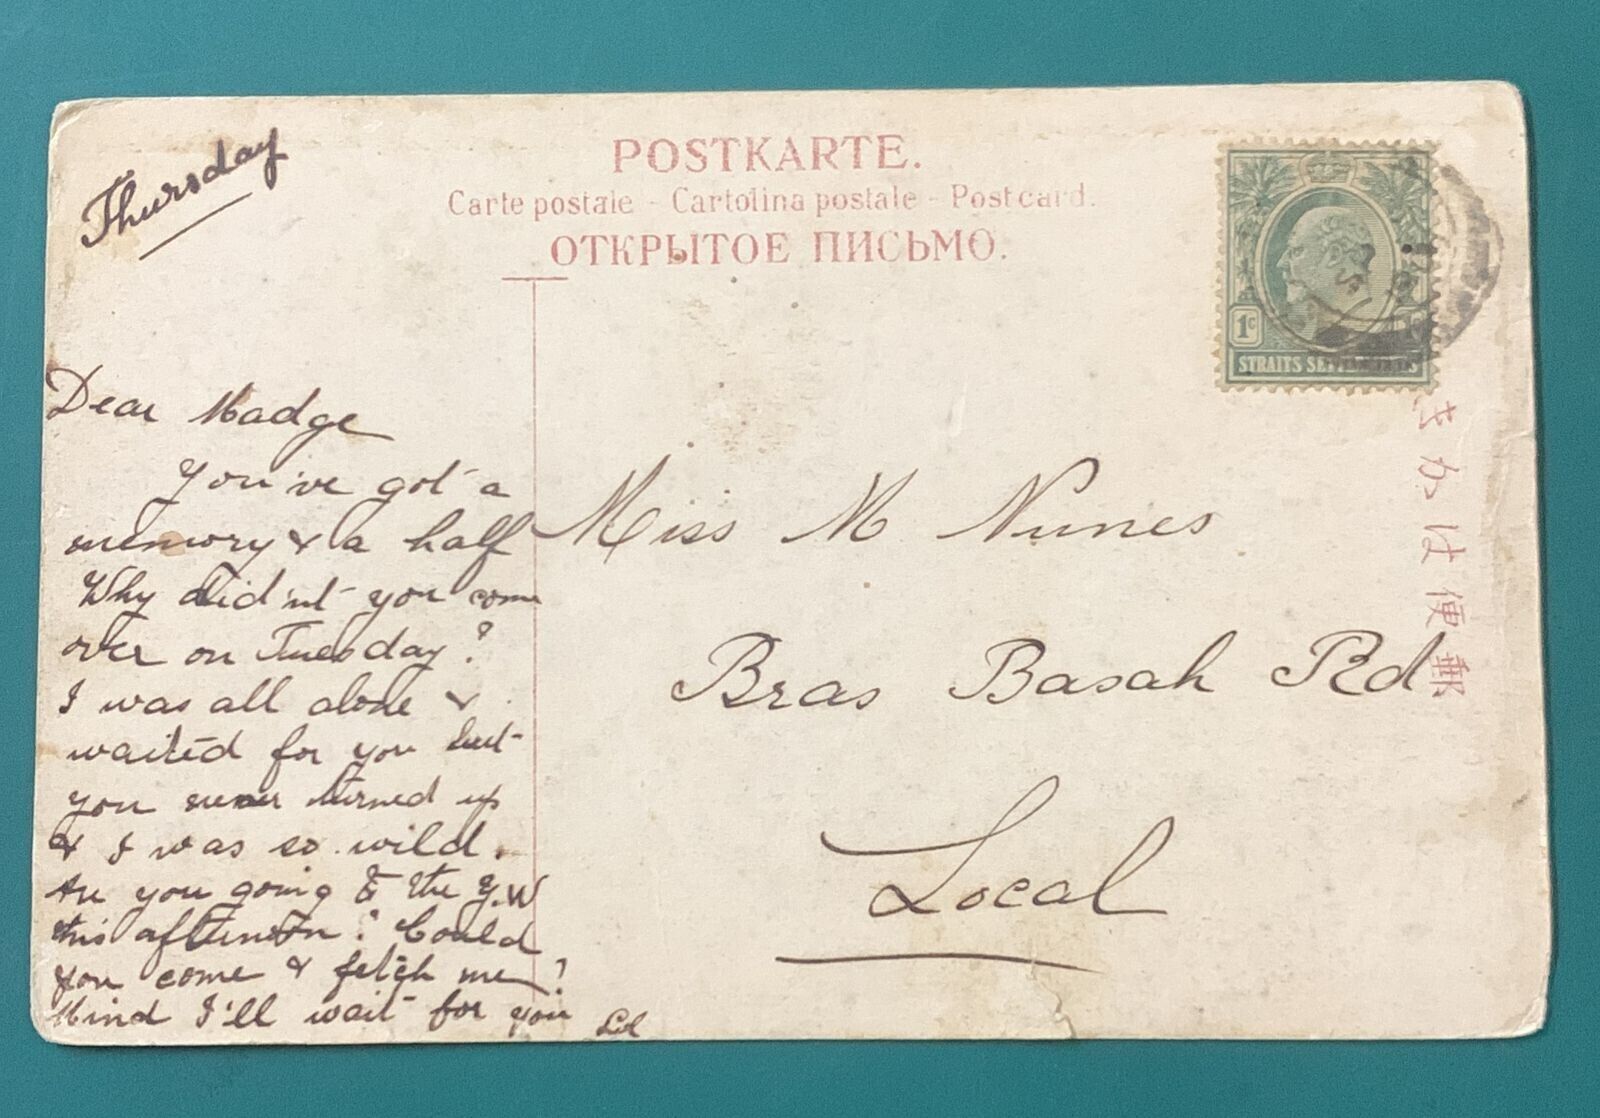 Thursday
POSTKARTE.
Carte postale - Cartolina postale - Postcard.
ОТКРЫТОЕ ПИСЬМО.
1c
STRAITS SETTLEMENTS
きかは便郵
Dear Madge
You've got a
memory & a half
Why did'nt you come
over on Tuesday?
I was all alone &
waited for you but
you never turned up
& I was so wild.
Are you going to the Y.W
this afternoon? Could
you come & fetch me?
Mind I'll wait for you
Miss M Nunes
Bras Basah Rd
Local